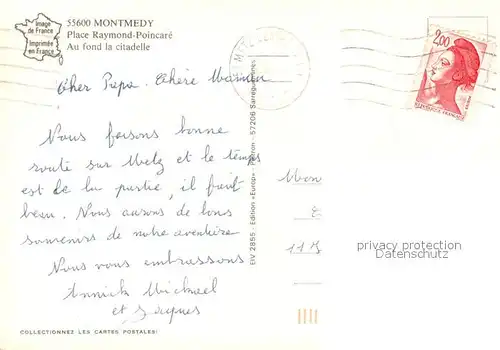 Image
de France
Imprimée
en France
55600 MONTMEDY
Place Raymond-Poincaré
Au fond la citadelle
2,00
REPUBLIQUE FRANÇAISE
Cher Papa Chère Maman
Nous faisons bonne
route sur Metz et le temps
est de la partie, il fait
beau. Nous aurons de bons
souvenirs de notre aventure
Nous vous embrassons
Annick Mickael
et Jacques
EIV 2855 - Edition «Europ» - Pierron - 57206 Sarreguemines
privacy protection
Datenschutz
COLLECTIONNEZ LES CARTES POSTALES!